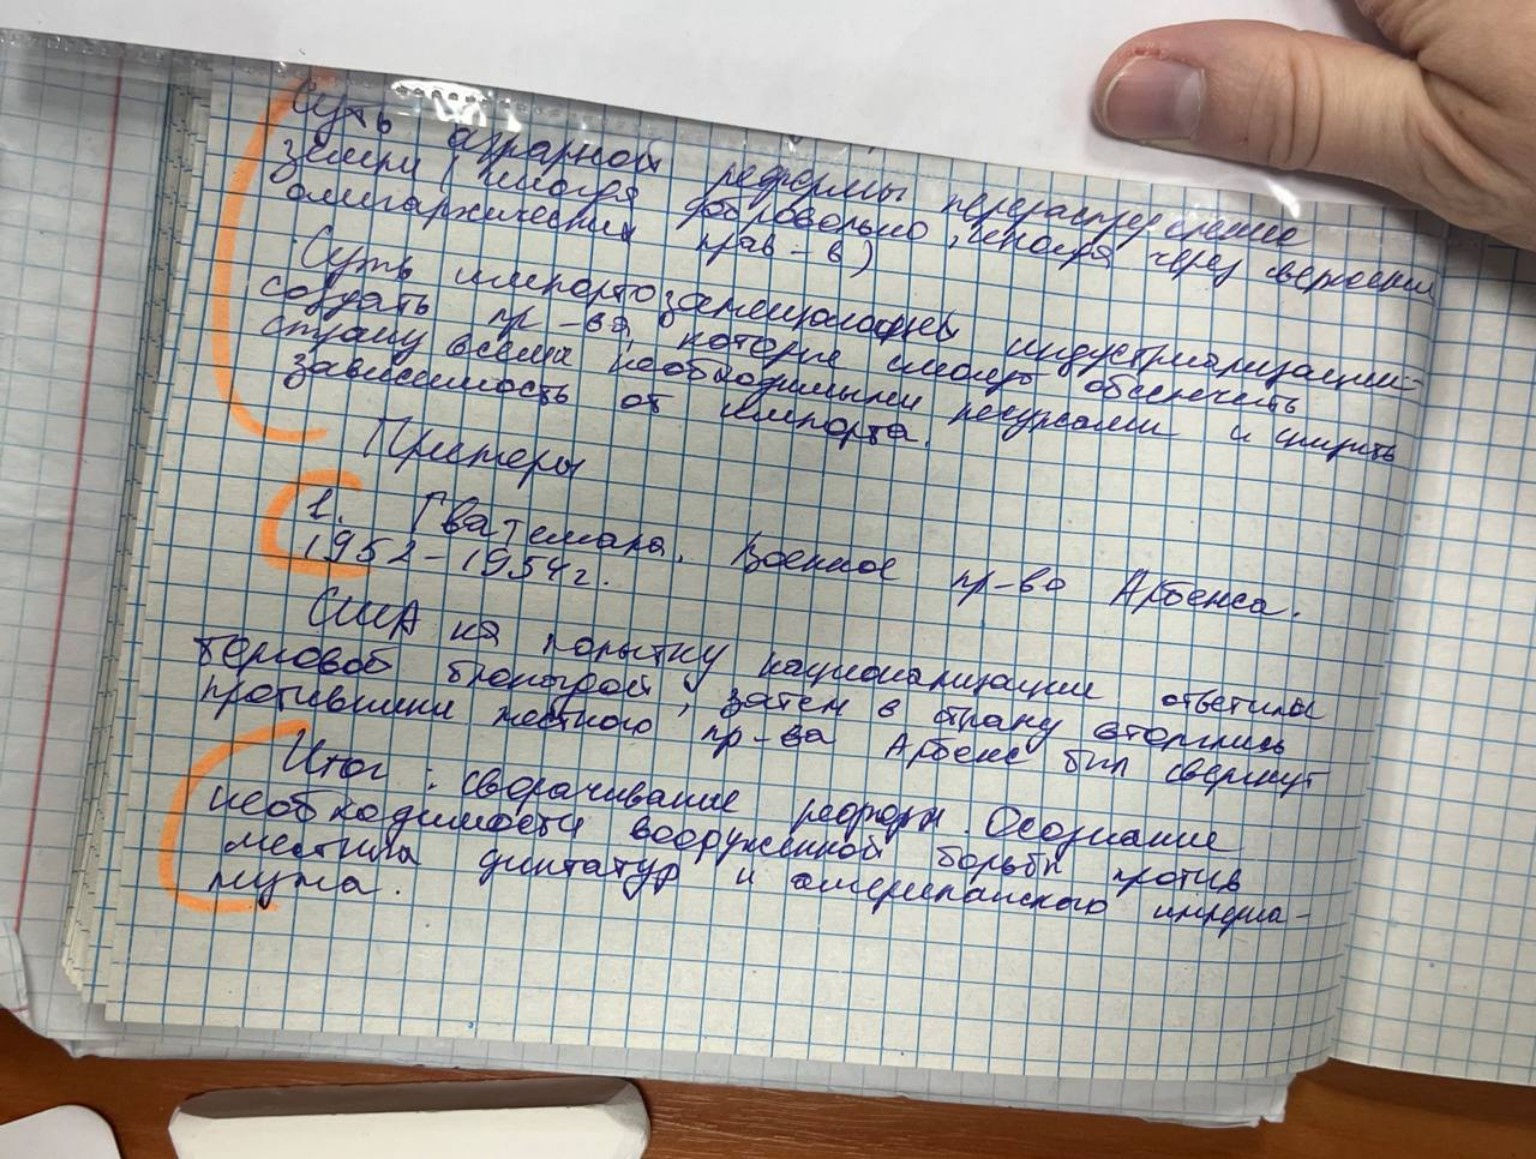 Суть аграрной реформы перераспределение
земли (иногда добровольно, иногда через свержения
олигархических прав-в)
Суть импортозамещающей индустриализации-
создать пр-ва, которые смогут обеспечить
страну всеми необходимыми ресурсами и снизить
зависимость от импорта.
Примеры
1. Гватемала. Военное пр-во Арбенса.
1952-1954г.
США на попытку национализации ответила
торговой блокадой, затем в страну вторглись
противники местного пр-ва Арбенс был свергнут
Итог: сворачивание реформ. Осознание
необходимости вооруженной борьбы против
диктатур и американского империа-
лизма.